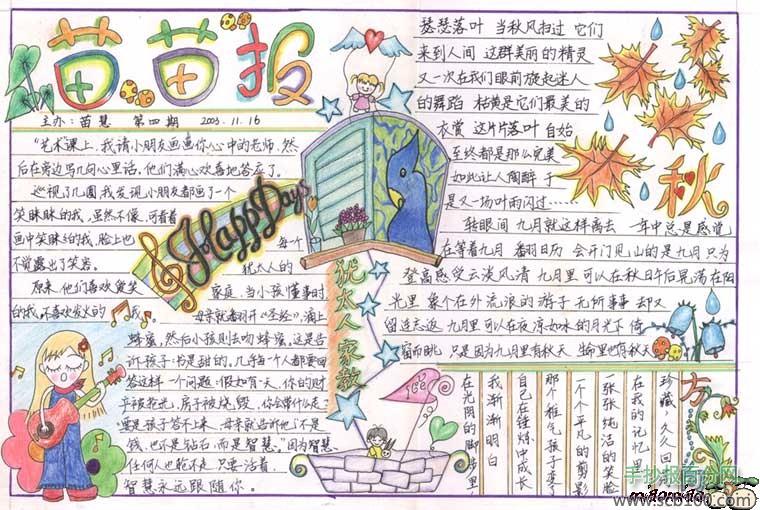 苗苗报
主办：苗慧 第四期 2003.11.16
“艺术”课上，我请小朋友画画你心中的老师，然
后在旁边写几句心里话，他们满心欢喜地答应了。
巡视了几圈，我发现小朋友都画了一个
笑眯眯的我，虽然不像，可看着
画中笑眯眯的我，脸上也
不觉露出了笑容。
原来，他们喜欢微笑
的我，不喜欢发火的我。
Happy Days
犹太人家教
每个
犹太人的
家庭，当小孩懂事时，
母亲就翻开《圣经》，滴上
蜂蜜，然后小孩则去吻蜂蜜。这是告
诉孩子：书是甜的，几乎每个人都要回
答这样一个问题：假如有一天，你的财
产被抢光，房子被烧毁，你会带什么走？
要是孩子答不上来，母亲就告诉他：“不是
钱，也不是钻石，而是智慧。”因为智慧
任何人也抢不走，只要活着，
智慧永远跟随你。
秋
瑟瑟落叶 当秋风扫过 它们
来到人间 这群美丽的精灵
又一次在我们眼前旋起迷人
的舞蹈 枯黄是它们最美的
衣赏 这片片落叶 自始
至终都是那么完美
如此让人陶醉 于
是又一场叶雨闪过……
转眼间 九月就这样离去 一年中总是感觉
在等着九月 翻日历 会开门见山的是九月 只为
登高感受云淡风清 九月里 可以在秋日午后晃荡在阳
光里 象个在外流浪的游子 无所事事 却又
留连忘返 九月里可以在夜凉如水的月光下 倚
窗而眺 只是因为九月里有秋天 生命里也有秋天
方
珍藏，久久回
在我的记忆里
一张张纯洁的笑脸
一个个平凡的剪影
那个稚气孩子变了
自己在锤炼中成长
我渐渐明白
在光阴的脚步里
手抄报百分网
www.scb100.com